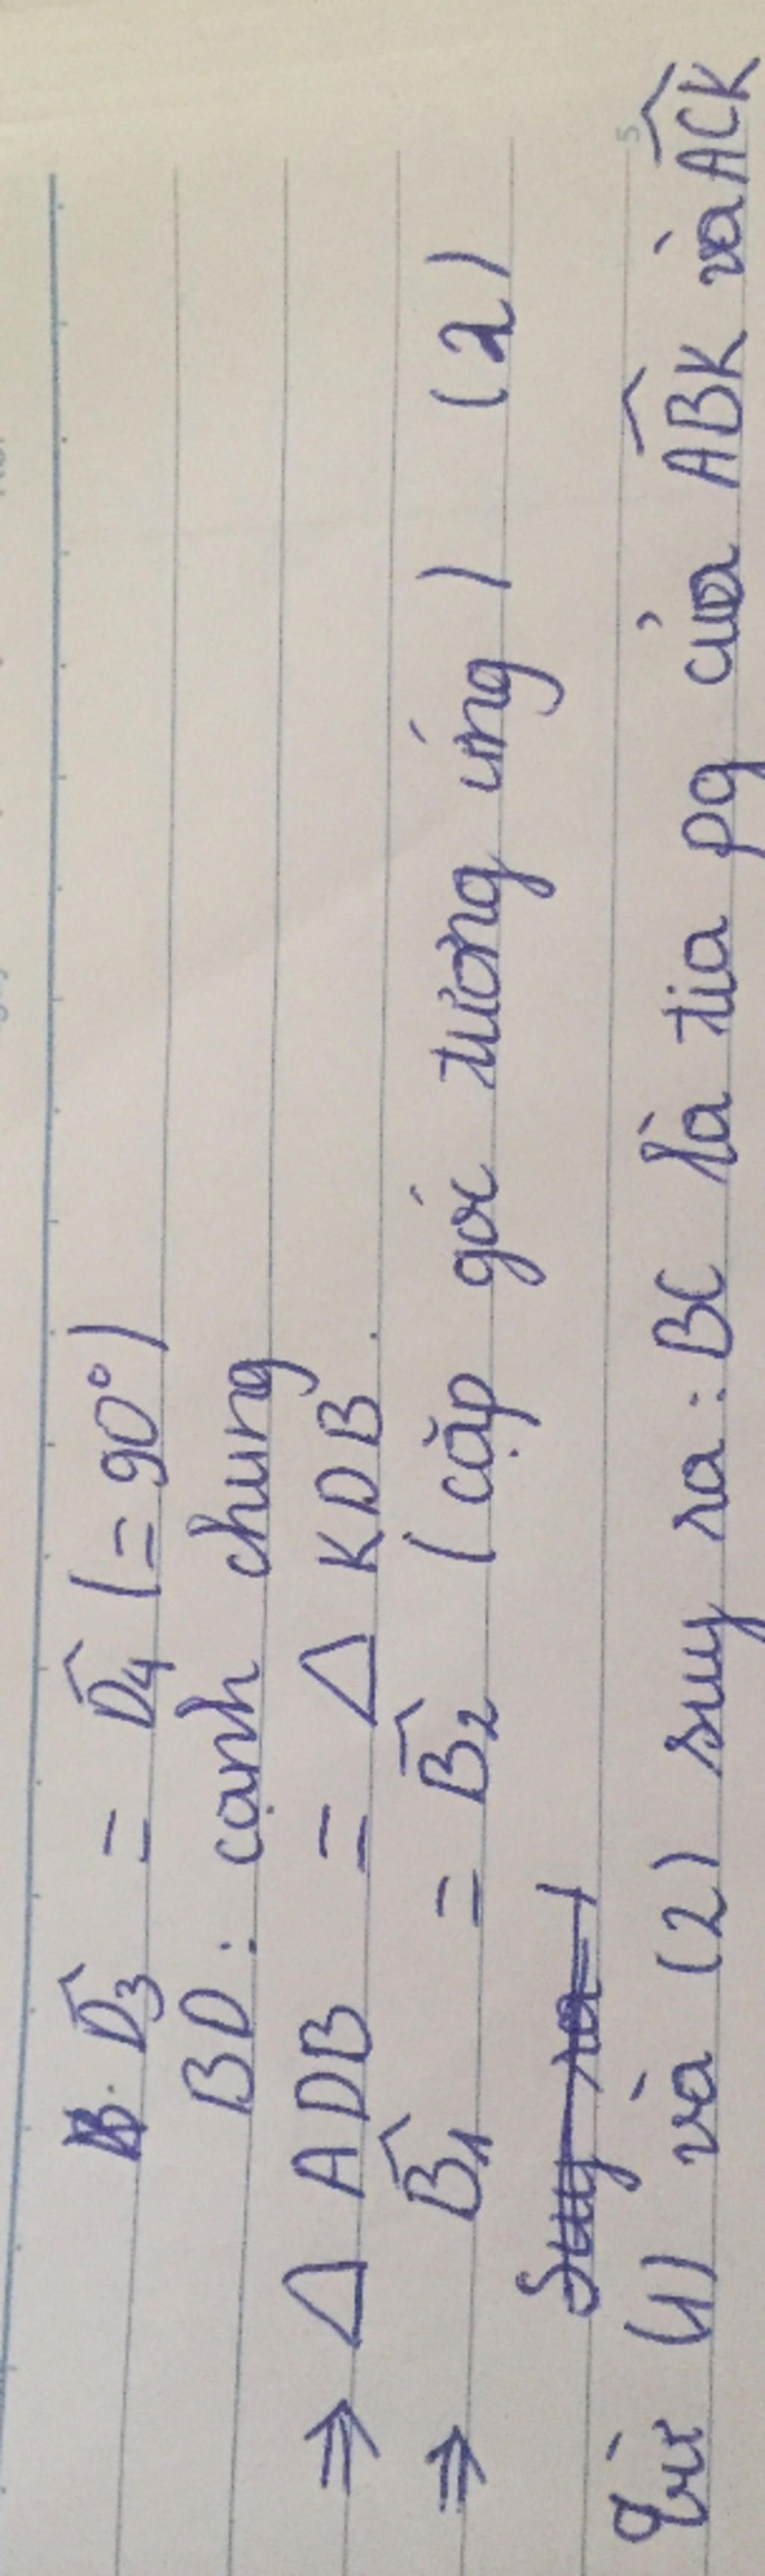 D̂₃ = D̂₄ (= 90°)
BD : cạnh chung
⇒ △ ADB = △ KDB.
⇒ B̂₁ = B̂₂ (cặp góc tương ứng) (2)
Suy ra
Từ (1) và (2) suy ra : BC là tia pg của ABK̂ và ACK̂